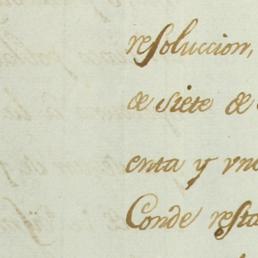 resoluccion,
de siete de
enta y vn
Conde resta